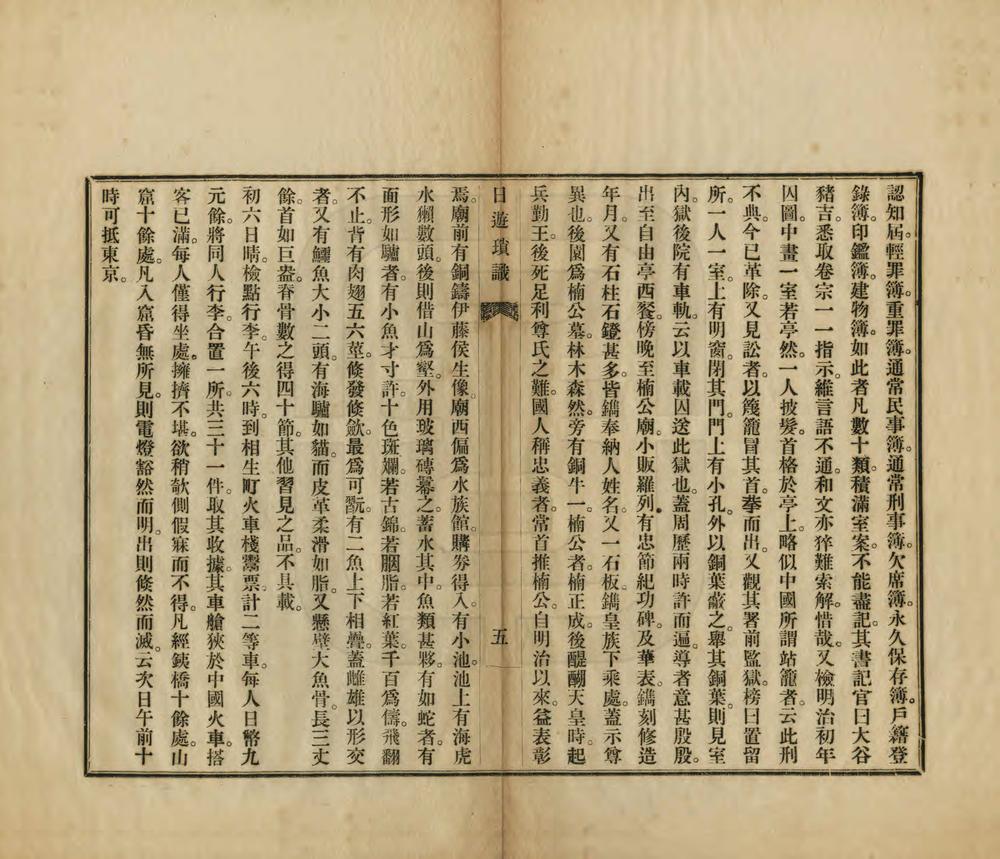 認知屆。輕罪簿。重罪簿。通常民事簿。通常刑事簿。欠席簿。永久保存簿。戶籍登
錄簿。印鑑簿。建物簿。如此者凡數十類。積滿室案。不能盡記。其書記官曰大谷
豬吉。悉取卷宗一一指示。維言語不通。和文亦猝難索解。惜哉。又檢明治初年
囚圖。中畫一室若亭然。一人披髮首格於亭上。略似中國所謂站籠者。云此刑
不典。今已革除。又見訟者。以篾籠冒其首。拲而出。又觀其署前監獄。榜曰置留
所。一人一室。上有明窗。閉其門。門上有小孔。外以銅葉蔽之。舉其銅葉。則見室
內。獄後院有車軌。云以車載囚送此獄也。蓋周歷兩時許而遍。導者意甚殷殷。
出至自由亭西餐。傍晚至楠公廟。小販羅列。有忠節紀功碑。及華表。鐫刻修造
年月。又有石柱石鐙甚多。皆鐫奉納人姓名。又一石板。鐫皇族下乘處。蓋示尊
異也。後園爲楠公墓。林木森然。旁有銅牛一。楠公者。楠正成。後醍醐天皇時。起
兵勤王。後死足利尊氏之難。國人稱忠義者。常首推楠公。自明治以來。益表彰
日遊瑣識
五
焉。廟前有銅鑄伊藤侯生像。廟西偏爲水族館。購券得入。有小池。池上有海虎
水獺數頭。後則借山爲壑。外用玻璃磚冪之。蓄水其中。魚類甚夥。有如蛇者。有
面形如驢者。有小魚才寸許。十色斑斕。若古錦。若胭脂。若紅葉。千百爲儔。飛翻
不止。背有肉翅五六莖。倏發倏斂。最爲可翫。有二魚上下相疊。蓋雌雄以形交
者。又有鱷魚大小二頭。有海驢如貓。而皮革柔滑如脂。又懸壁大魚骨。長三丈
餘。首如巨盎。脊骨數之得四十節。其他習見之品。不具載。
初六日晴。檢點行李。午後六時。到相生町火車棧鬻票。計二等車。每人日幣九
元餘。將同人行李。合置一所。共三十一件。取其收據。其車艙狹於中國火車。搭
客已滿。每人僅得坐處。擁擠不堪。欲稍欹側假寐而不得。凡經鐵橋十餘處。山
窟十餘處。凡入窟昏無所見。則電燈豁然而明。出則倏然而滅。云次日午前十
時可抵東京。